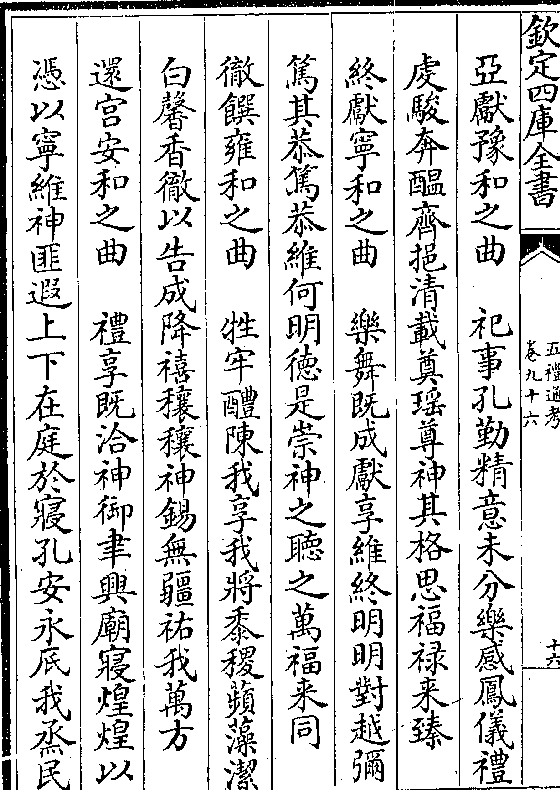 欽定四庫全書
五禮通考
卷九十六
十六
亞獻豫和之曲　祀事孔勤精意未分樂感鳳儀禮
虔駿奔醖齊挹清載奠瑤尊神其格思福禄来臻
終獻寧和之曲　樂舞既成獻享維終明明對越彌
篤其恭篤恭維何明德是崇神之聽之萬福来同
徹饌雍和之曲　牲牢醴陳我享我將黍稷蘋藻潔
白馨香徹以告成降禧穰穰神錫無疆祐我萬方
還宫安和之曲　禮享既洽神御聿興廟寢煌煌以
憑以寧維神匪遐上下在庭於寢孔安永底我烝民